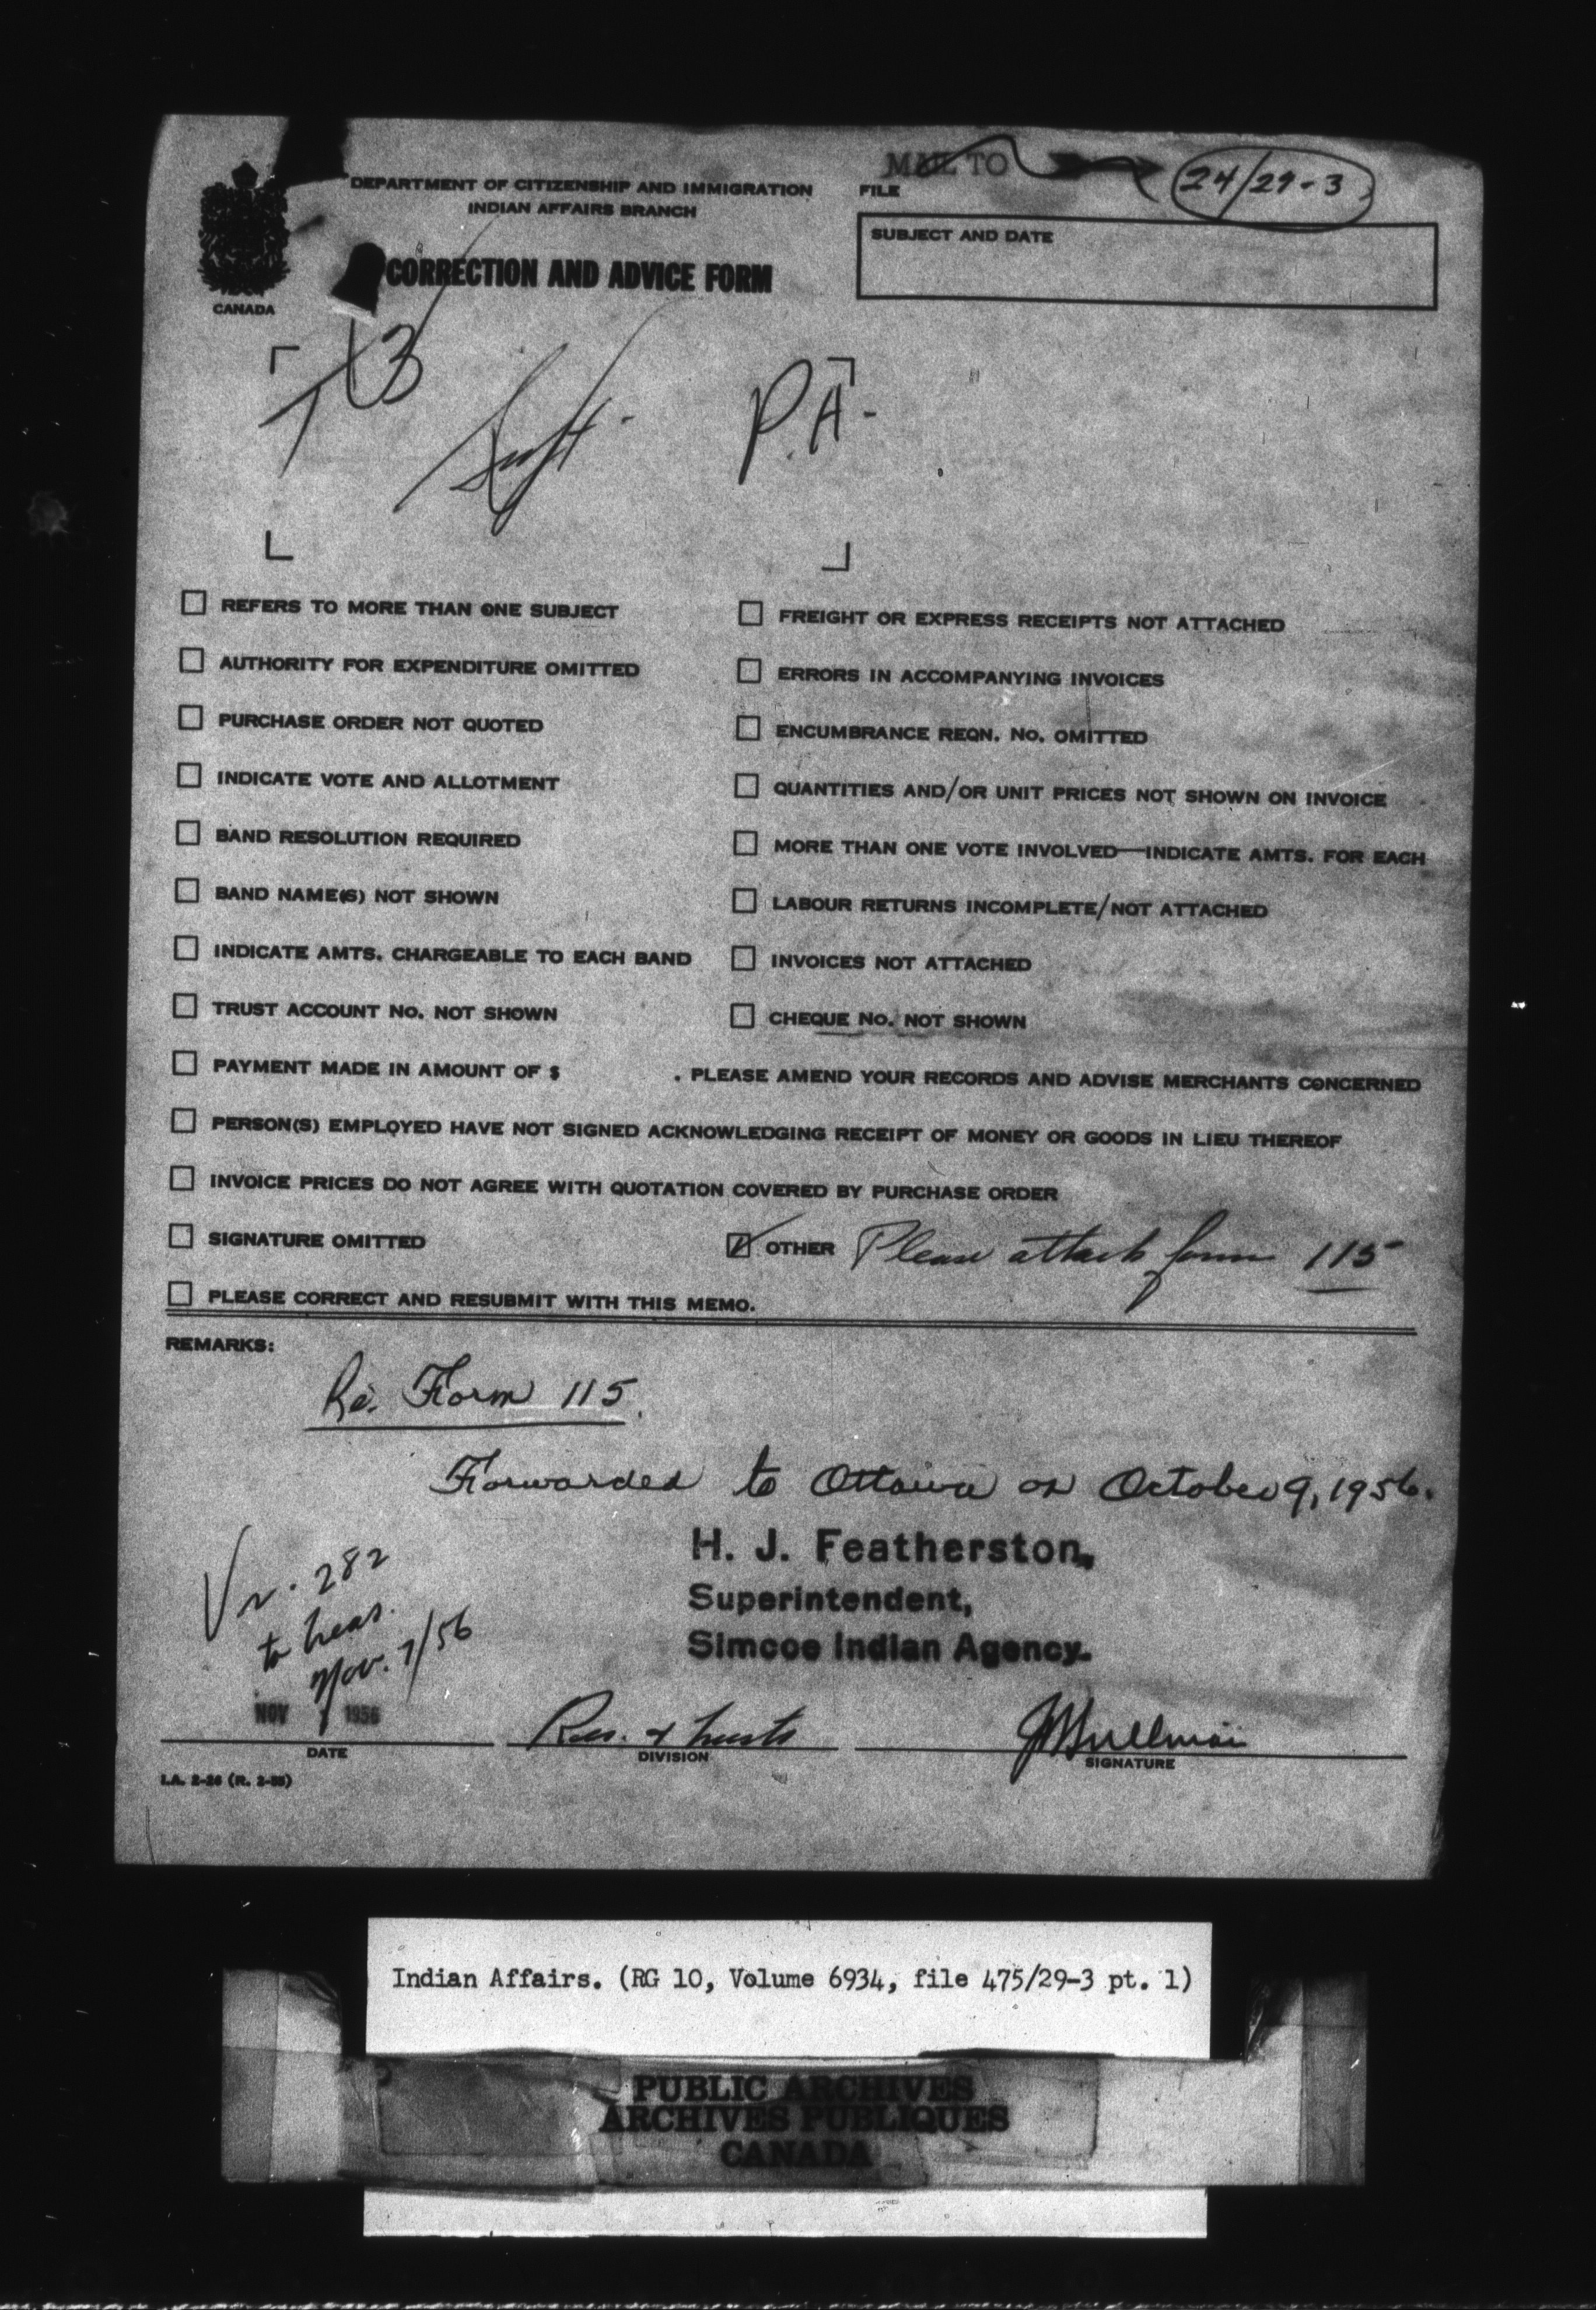 MAIL TO
24/29-3
DEPARTMENT OF CITIZENSHIP AND IMMIGRATION
FILE
INDIAN AFFAIRS BRANCH
SUBJECT AND DATE
CORRECTION AND ADVICE FORM
CANADA
Supt. P.A.
☐ REFERS TO MORE THAN ONE SUBJECT
☐ FREIGHT OR EXPRESS RECEIPTS NOT ATTACHED
☐ AUTHORITY FOR EXPENDITURE OMITTED
☐ ERRORS IN ACCOMPANYING INVOICES
☐ PURCHASE ORDER NOT QUOTED
☐ ENCUMBRANCE REQN. NO. OMITTED
☐ INDICATE VOTE AND ALLOTMENT
☐ QUANTITIES AND/OR UNIT PRICES NOT SHOWN ON INVOICE
☐ BAND RESOLUTION REQUIRED
☐ MORE THAN ONE VOTE INVOLVED—INDICATE AMTS. FOR EACH
☐ BAND NAME(S) NOT SHOWN
☐ LABOUR RETURNS INCOMPLETE/NOT ATTACHED
☐ INDICATE AMTS. CHARGEABLE TO EACH BAND
☐ INVOICES NOT ATTACHED
☐ TRUST ACCOUNT NO. NOT SHOWN
☐ CHEQUE NO. NOT SHOWN
☐ PAYMENT MADE IN AMOUNT OF $ . PLEASE AMEND YOUR RECORDS AND ADVISE MERCHANTS CONCERNED
☐ PERSON(S) EMPLOYED HAVE NOT SIGNED ACKNOWLEDGING RECEIPT OF MONEY OR GOODS IN LIEU THEREOF
☐ INVOICE PRICES DO NOT AGREE WITH QUOTATION COVERED BY PURCHASE ORDER
☐ SIGNATURE OMITTED
☑ OTHER Please attach form 115
☐ PLEASE CORRECT AND RESUBMIT WITH THIS MEMO.
REMARKS:
Re. Form 115.
Forwarded to Ottawa on October 9, 1956.
H. J. Featherston,
Superintendent,
Simcoe Indian Agency.
282
to treas.
Nov. 7/56
NOV 1956
Res. & trusts
DATE
DIVISION
SIGNATURE
Indian Affairs. (RG 10, Volume 6934, file 475/29-3 pt. 1)
PUBLIC ARCHIVES
ARCHIVES PUBLIQUES
CANADA